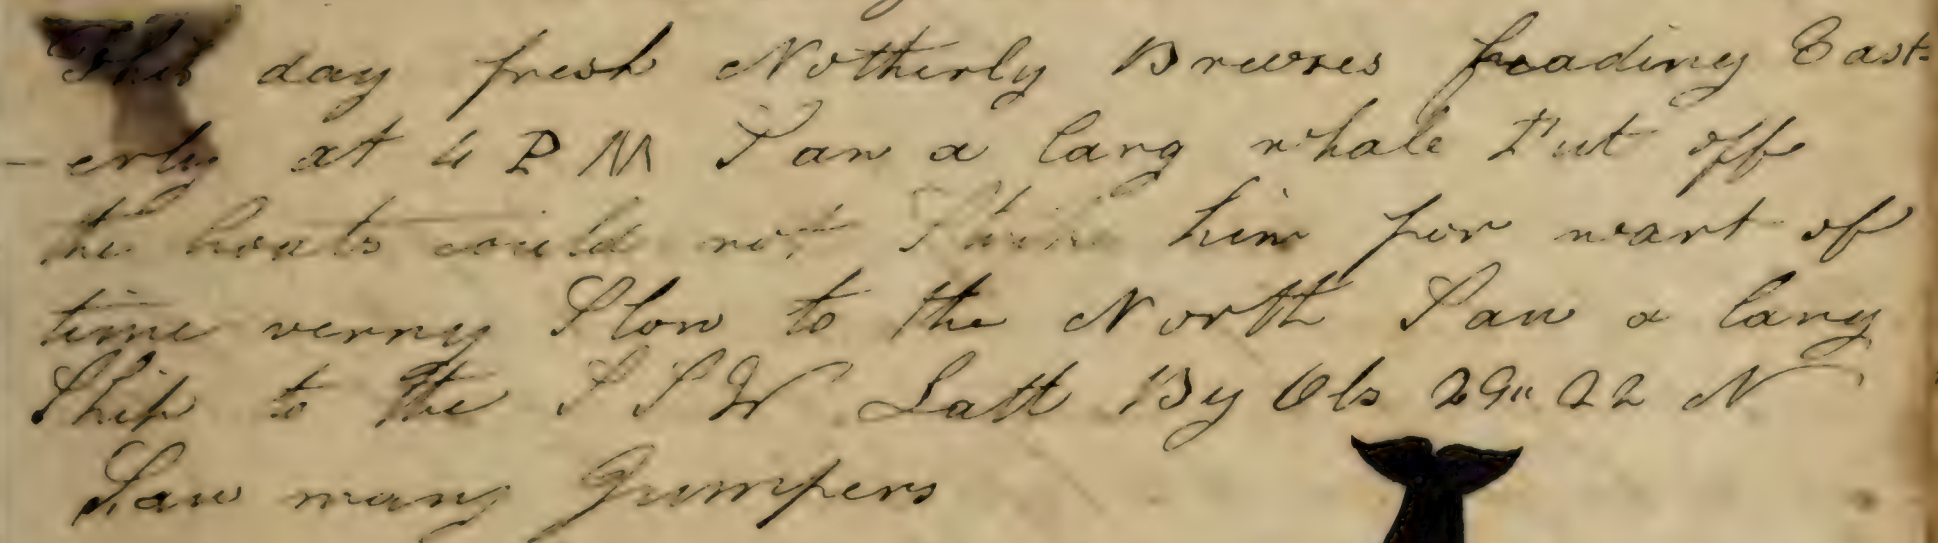 This day fresh Notherly Breezes heading East-
-erly at 4 P M Saw a larg whale Put off
the boats could not Strike him for want of
time verry Slow to the North Saw a larg
Ship to the S S W Latt By Obs 29" 22 N
Saw many Jumpers